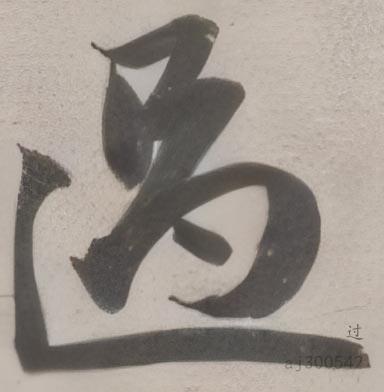 過
过
aj300542